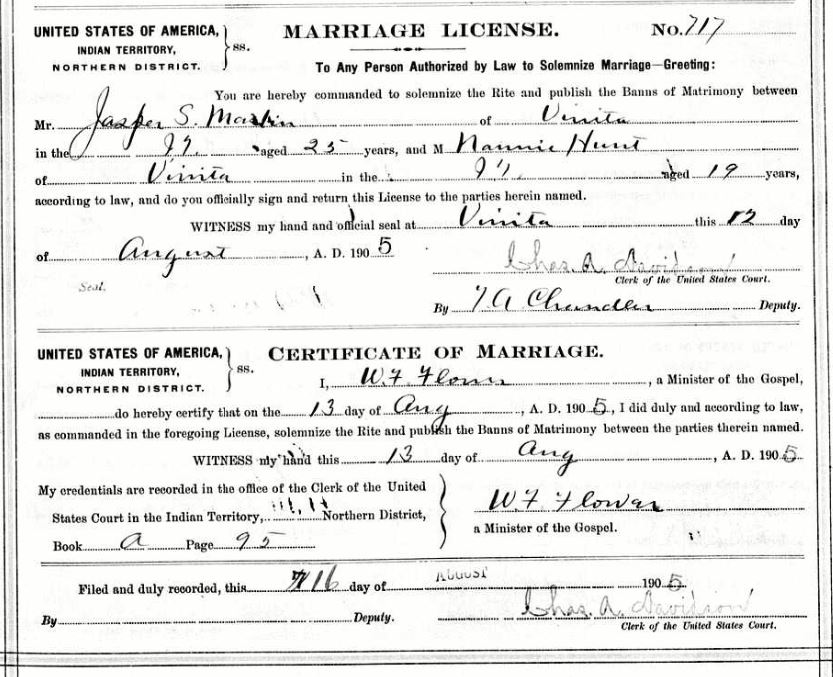 UNITED STATES OF AMERICA, INDIAN TERRITORY, NORTHERN DISTRICT. } ss. MARRIAGE LICENSE. No. 717
To Any Person Authorized by Law to Solemnize Marriage—Greeting:
You are hereby commanded to solemnize the Rite and publish the Banns of Matrimony between
Mr. Jasper S. Martin of Vinita
in the I.T. aged 25 years, and M Nannie Hunt
of Vinita in the I.T. aged 19 years,
according to law, and do you officially sign and return this License to the parties herein named.
WITNESS my hand and official seal at Vinita this 12 day
of August, A. D. 190 5
Chas. A. Davidson
Seal. Clerk of the United States Court.
By T A Chandler Deputy.
UNITED STATES OF AMERICA, INDIAN TERRITORY, NORTHERN DISTRICT. } ss. CERTIFICATE OF MARRIAGE.
I, W. F. Flower, a Minister of the Gospel,
do hereby certify that on the 13 day of Aug, A. D. 190 5, I did duly and according to law,
as commanded in the foregoing License, solemnize the Rite and publish the Banns of Matrimony between the parties therein named.
WITNESS my hand this 13 day of Aug, A. D. 190 5
My credentials are recorded in the office of the Clerk of the United
States Court in the Indian Territory, Northern District,
Book A Page 95
W. F. Flower
a Minister of the Gospel.
Filed and duly recorded, this 16 day of AUGUST 190 5
Chas. A. Davidson
By Deputy. Clerk of the United States Court.